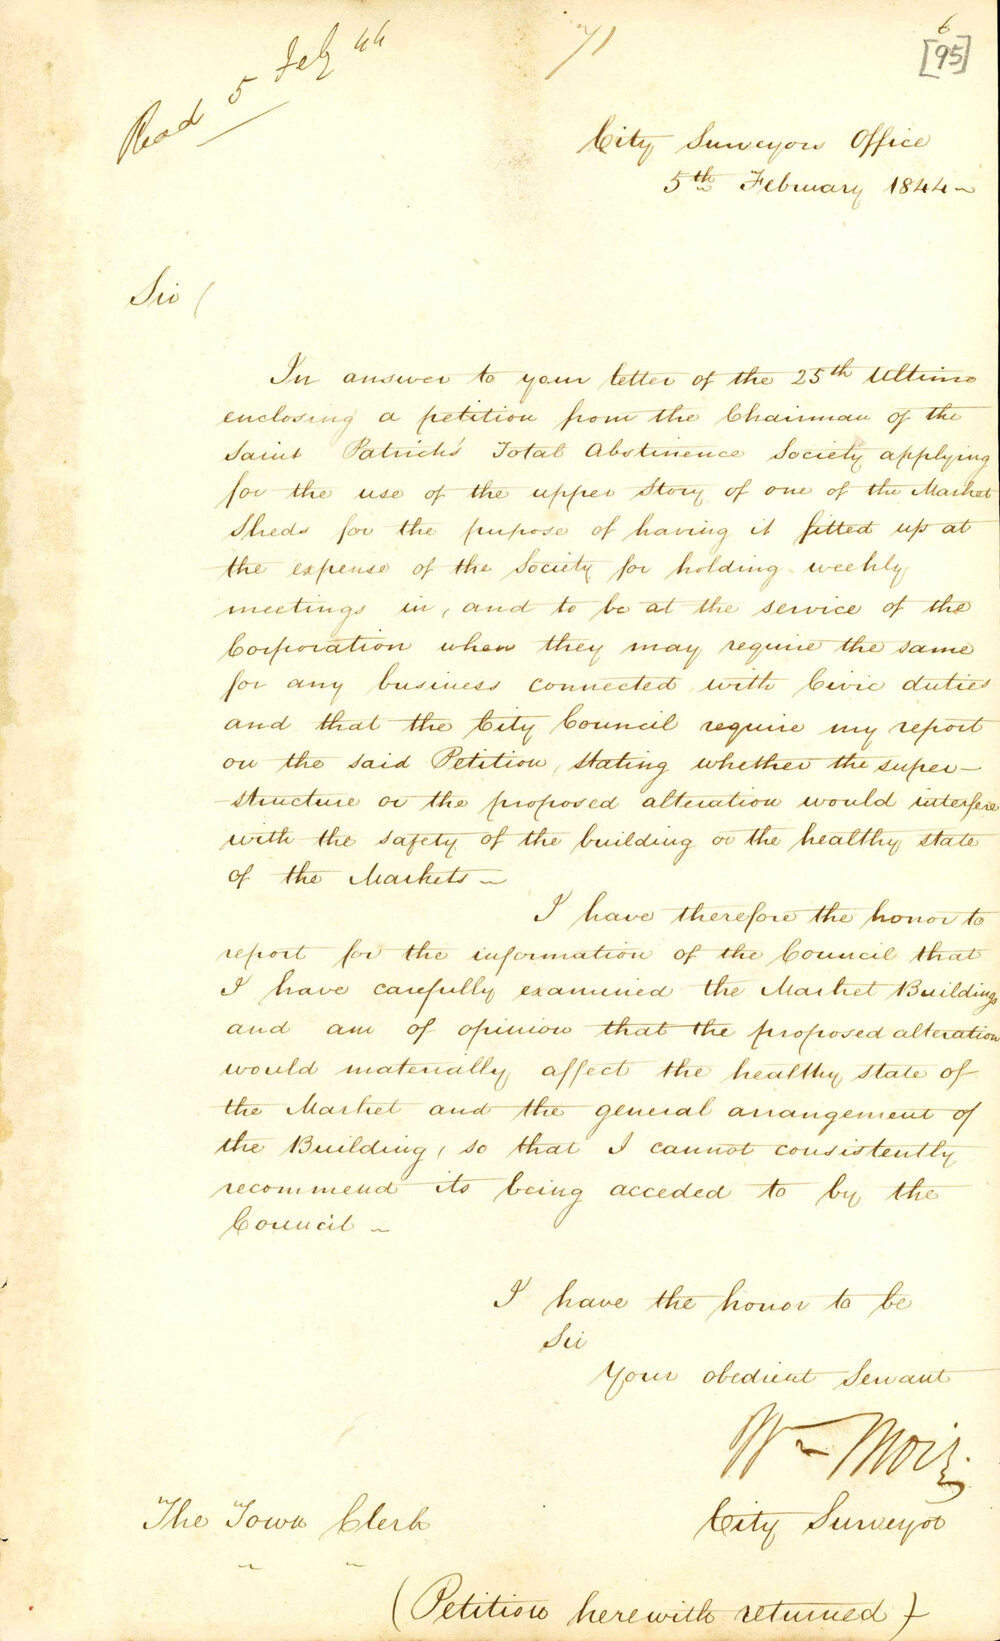 Read 5 Feby 44
71
6
[95]
City Surveyors Office
5th February 1844
Sir
In answer to your letter of the 25th Ultimo
enclosing a petition from the Chairman of the
Saint Patrick's Total Abstinence Society applying
for the use of the upper Story of one of the Market
Sheds for the purpose of having it fitted up at
the expense of the Society for holding weekly
meetings in, and to be at the service of the
Corporation when they may require the same
for any business connected with Civic duties
and that the City Council require my report
on the said Petition, stating whether the super-
-structure or the proposed alteration would interfere
with the safety of the building or the healthy state
of the Markets —
I have therefore the honor to
report for the information of the Council that
I have carefully examined the Market Buildings
and am of opinion that the proposed alteration
would materially affect the healthy state of
the Market and the general arrangement of
the Building, so that I cannot consistently
recommend its being acceded to by the
Council —
I have the honor to be
Sir
Your obedient Servant
Wm Moir
City Surveyor
The Town Clerk
(Petition herewith returned)